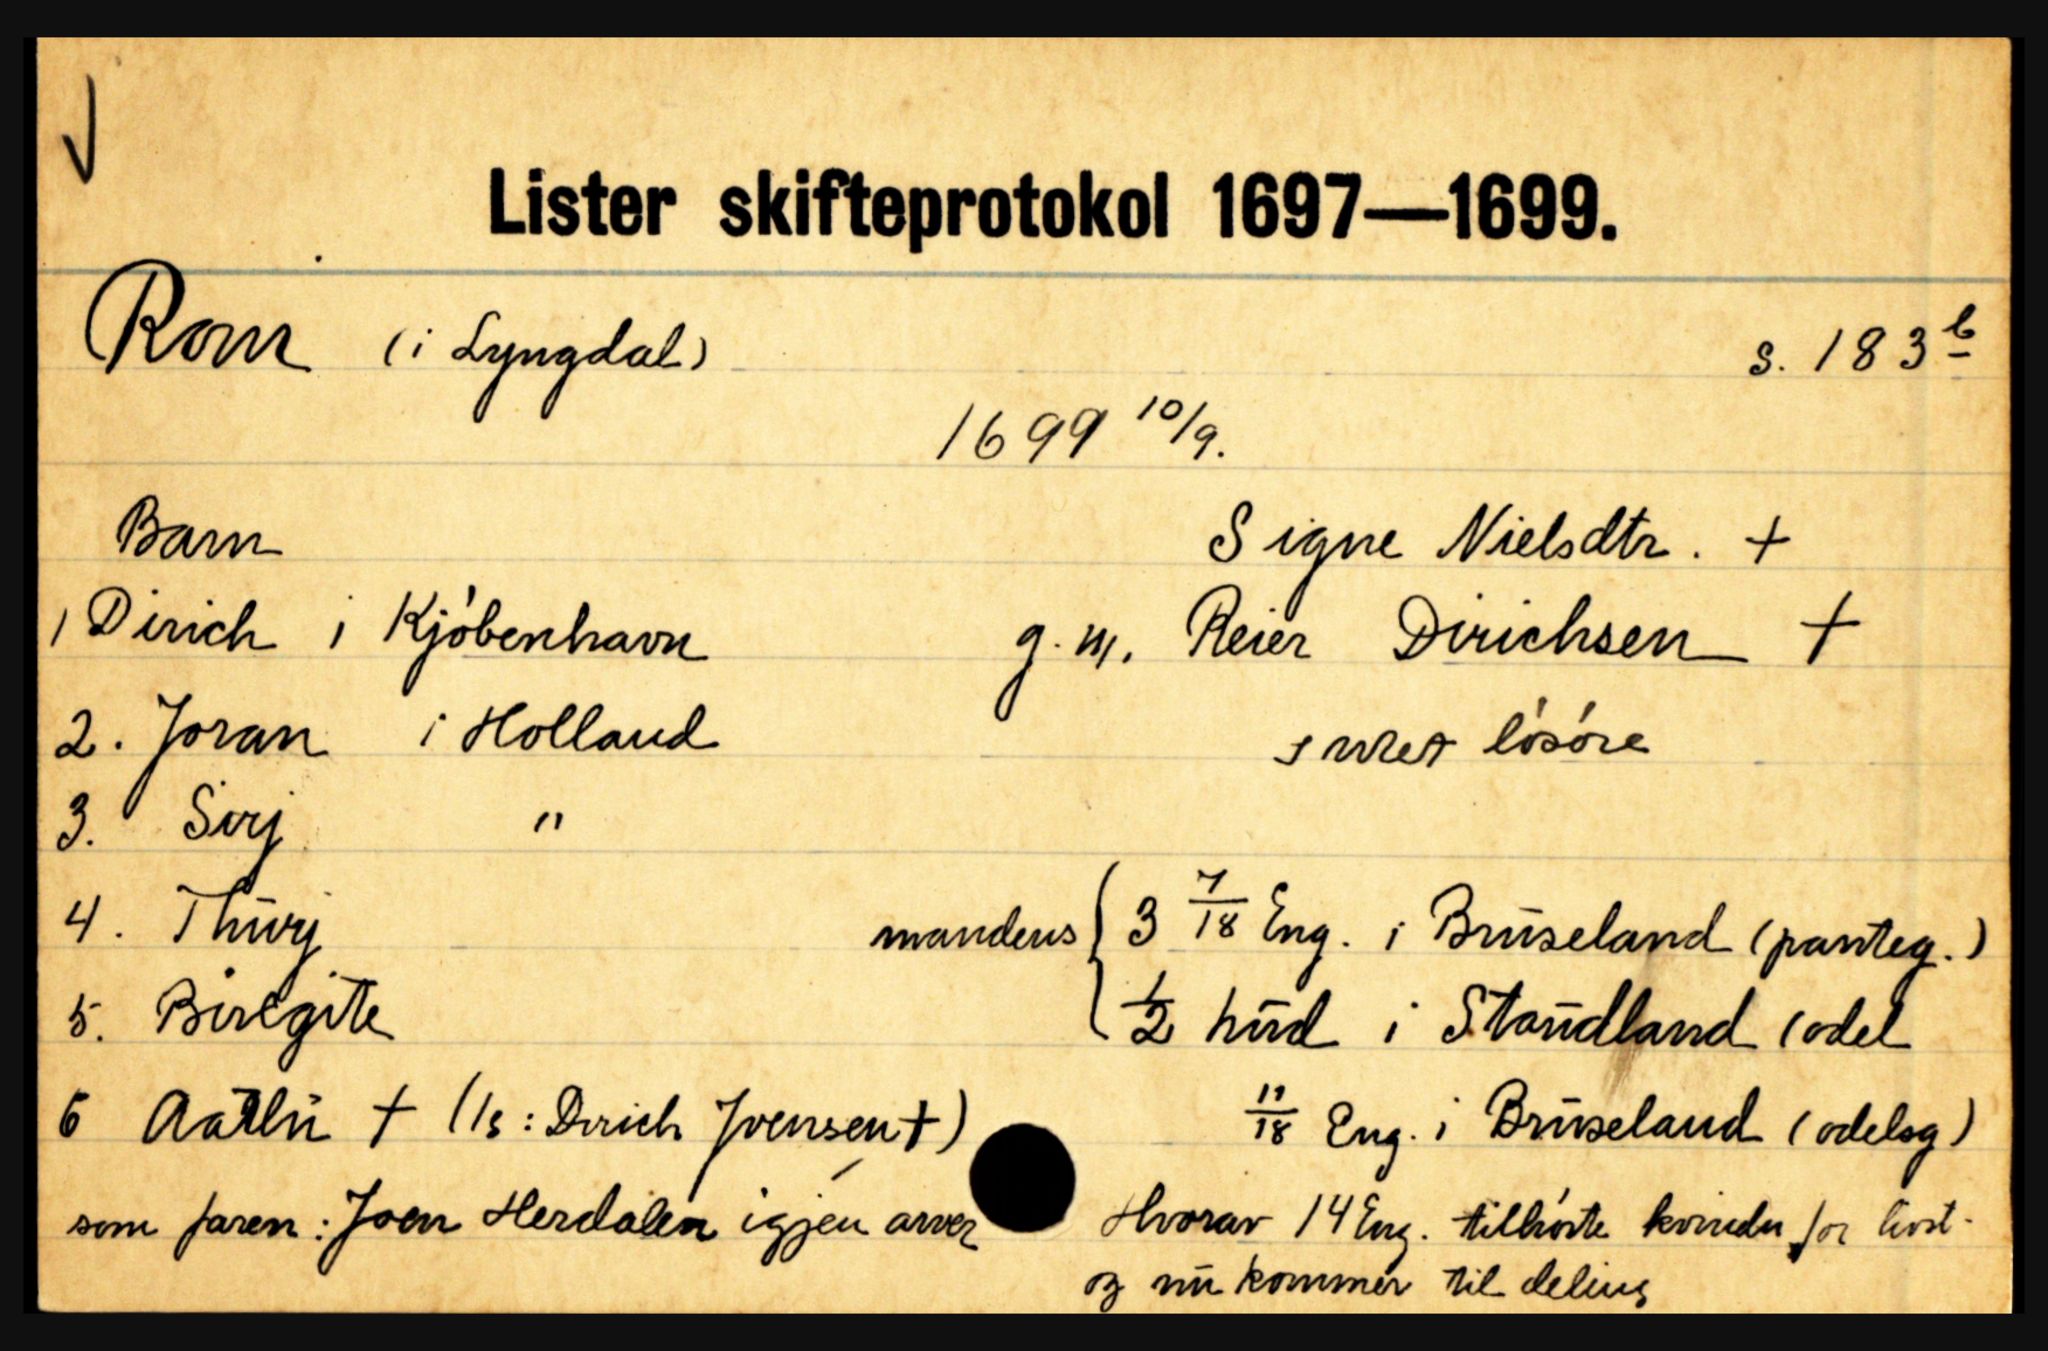 Lister skifteprotokol 1697—1699.
Rom (i Lyngdal) s. 183 b
1699 10/9.
Barn Signe Nielsdtr. +
1 Dirich i Kjóbenhavn g. m. Reier Dirichsen +
2. Joran i Holland lósóre
3. Sirj "
4. Thürj mandens { 3 7/18 Eng. i Brüseland (panteg.)
5. Biregite 1/2 hüd i Staüdland (odel
6 + (Is: Dirich Jvensen +) 11/18 Eng. i Brüseland (odelsg)
som faren: Joen Herdalen igjen arver Hvorav 14 Eng. tilhórte for livst.
og nü kommer til deling